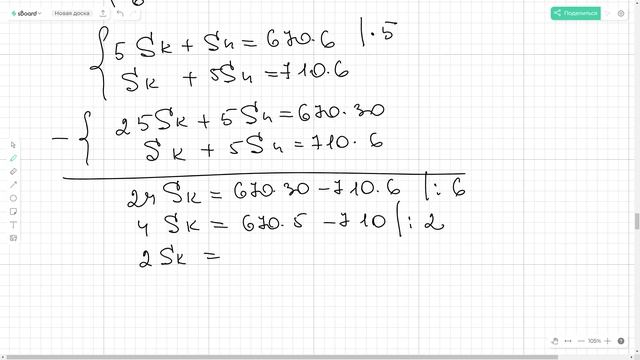 sBoard
Новая доска
Поделиться
5Sк + Sч = 670·6 |·5
Sк + 5Sч = 710·6
- 25Sк + 5Sч = 670·30
Sк + 5Sч = 710·6
24Sк = 670·30 - 710·6 |:6
4Sк = 670·5 - 710 |:2
2Sк =
105%